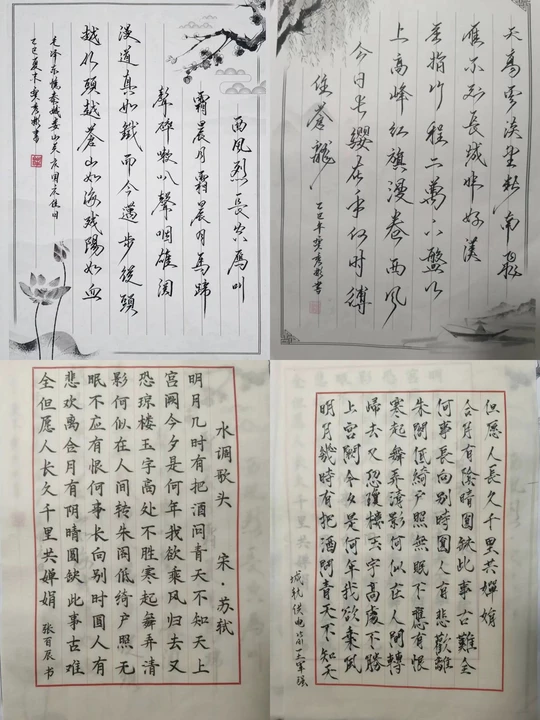 西風烈長空雁叫
霜晨月霜晨月馬蹄
聲碎喇叭聲咽雄関
漫道真如鐵而今邁步從頭
越從頭越蒼山如海殘陽如血
毛泽东忆秦娥娄山关
乙巳夏末
天高雲淡望断南飛
雁不到長城非好漢
屈指行程二萬六盤山
上高峰紅旗漫卷西風
今日長纓在手何时縛
住蒼龍
水调歌头 宋·苏轼
明月几时有把酒问青天不知天上
宫阙今夕是何年我欲乘风归去又
恐琼楼玉宇高处不胜寒起舞弄清
影何似在人间转朱阁低绮户照无
眠不应有恨何事长向别时圆人有
悲欢离合月有阴晴圆缺此事古难
全但愿人长久千里共婵娟 张百辰书
明月幾時有把酒問青天不知天
上宮闕今夕是何年我欲乘風
歸去又恐瓊樓玉宇高處不勝
寒起舞弄清影何似在人間轉
朱閣低綺户照無眠不應有恨
何事長向别時圓人有悲歡離
合月有陰晴圓缺此事古難全
但愿人長久千里共嬋娟